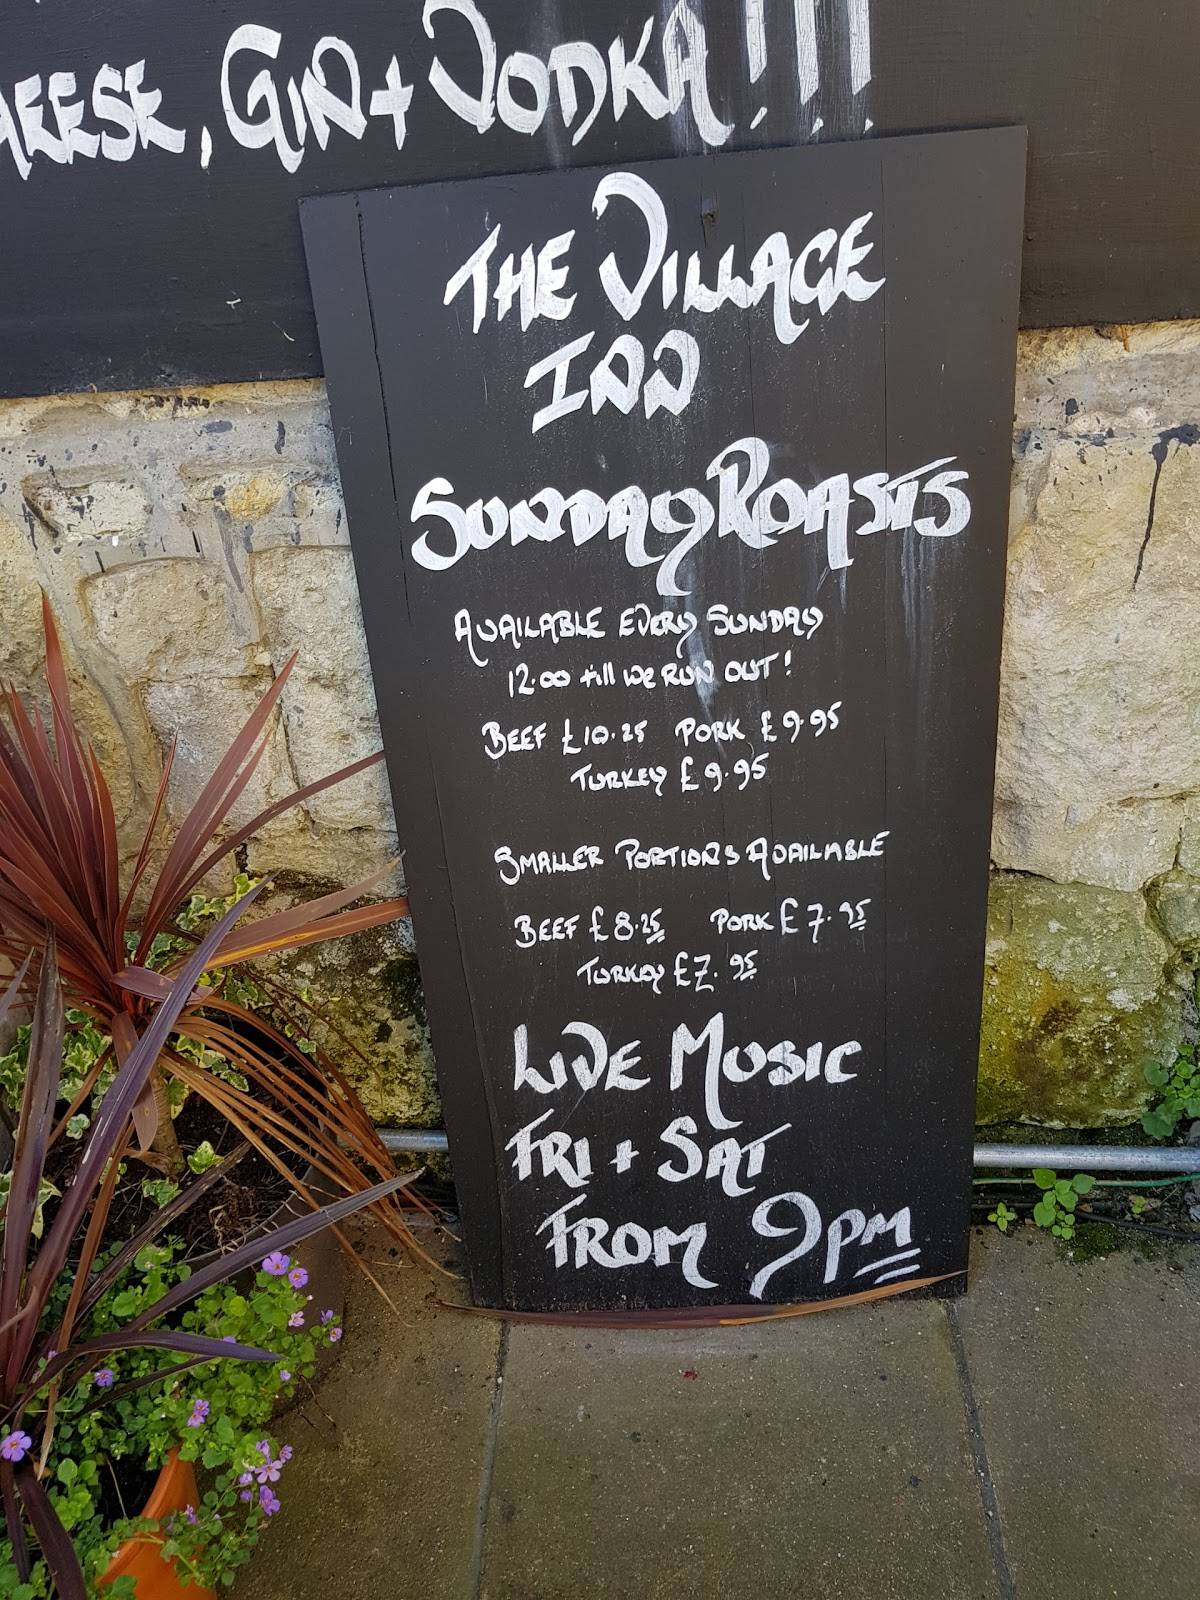 , GIN + VODKA!!!
THE VILLAGE
INN
SUNDAY ROASTS
AVAILABLE EVERY SUNDAY
12.00 till we RUN OUT!
BEEF £10.25 PORK £9.95
TURKEY £9.95
SMALLER PORTIONS AVAILABLE
BEEF £8.25 PORK £7.95
TURKEY £7.95
LIVE MUSIC
FRI + SAT
FROM 9PM